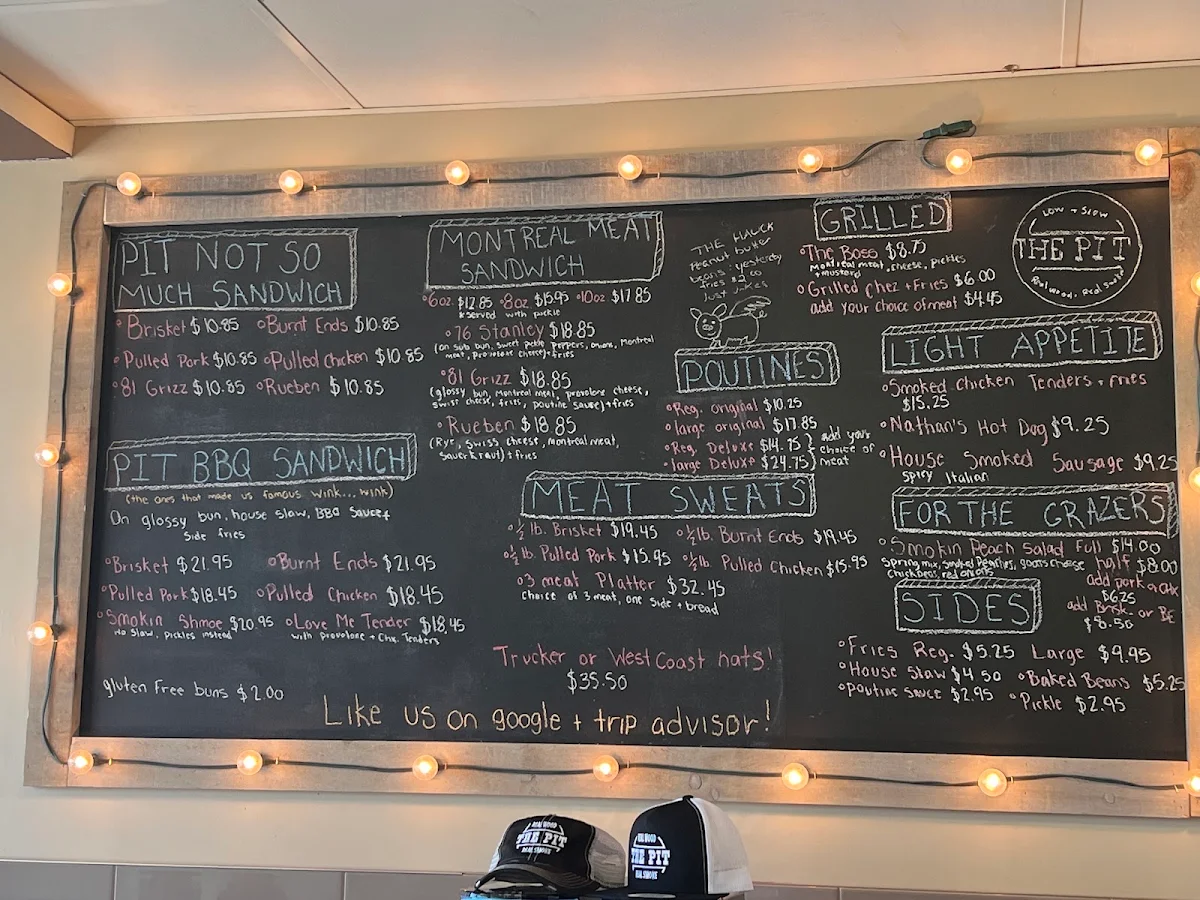 PIT NOT SO
MUCH SANDWICH
Brisket $10.85 Burnt Ends $10.85
Pulled Pork $10.85 Pulled Chicken $10.85
81 Grizz $10.85 Rueben $10.85
PIT BBQ SANDWICH
(the ones that made us famous wink... wink)
On glossy bun, house slaw, BBQ Sauce +
Side fries
Brisket $21.95 Burnt Ends $21.95
Pulled Pork $18.45 Pulled Chicken $18.45
Smokin Shmoe $20.95 Love Me Tender $18.45
no slaw, pickles instead with provolone + Chx. Tenders
gluten Free buns $2.00
MONTREAL MEAT
SANDWICH
6oz $12.85 8oz $15.95 10oz $17.85
*served with pickle
76 Stanley $18.85
(on sub bun, sweet pickle peppers, onions, Montreal
meat, provolone cheese) + fries
81 Grizz $18.85
(glossy bun, Montreal meat, provolone cheese,
swiss cheese, fries, poutine sauce) + fries
Rueben $18.85
(Rye, Swiss cheese, montreal meat,
Sauerkraut) + fries
THE HAUCK
Peanut butter
beans: yesterday
fries $2.00
Just Jokes
POUTINES
Reg. original $10.25
large original $17.85
Reg Deluxe $14.75 } add your
large Deluxe $24.75 } choice of
meat
MEAT SWEATS
½ lb. Brisket $19.45 ½ lb. Burnt Ends $19.45
½ lb. Pulled Pork $15.95 ½ lb. Pulled Chicken $15.95
3 meat Platter $32.45
choice of 3 meat, one side + bread
Trucker or West Coast hats!
$35.50
Like us on google + trip advisor!
GRILLED
The Boss $8.75
Montreal meat, cheese, pickles
+ mustard
Grilled Chez + Fries $6.00
add your choice of meat $4.45
LOW + SLOW
THE PIT
Real wood. Real smoke
LIGHT APPETITE
Smoked Chicken Tenders + fries
$15.25
Nathan's Hot Dog $9.25
House Smoked Sausage $9.25
Spicy Italian
FOR THE GRAZERS
Smokin Peach Salad Full $14.00
Spring mix, smoked peaches, goats cheese half $8.00
chickpeas, red onions
add pork or chx
$6.25
add Brisk. or BE
$8.50
SIDES
Fries Reg. $5.25 Large $9.95
House Slaw $4.50 Baked Beans $5.25
poutine sauce $2.95 Pickle $2.95
REAL WOOD
THE PIT
REAL SMOKE
REAL WOOD
THE PIT
REAL SMOKE